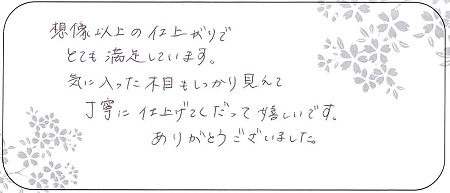 想像以上の仕上がりで
とても満足しています。
気に入った木目もしっかり見えて
丁寧に仕上げてくだって嬉しいです。
ありがとうございました。